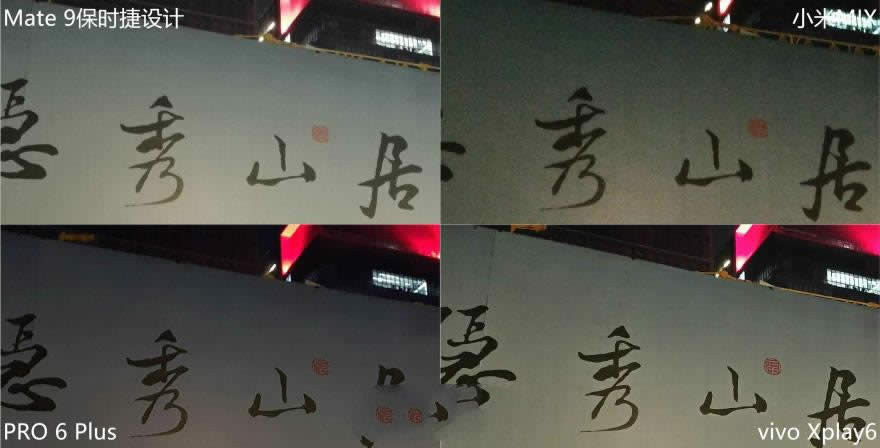 Mate 9保时捷设计
小米MIX
秀山居
秀山居
PRO 6 Plus
vivo Xplay6
秀山
秀山居